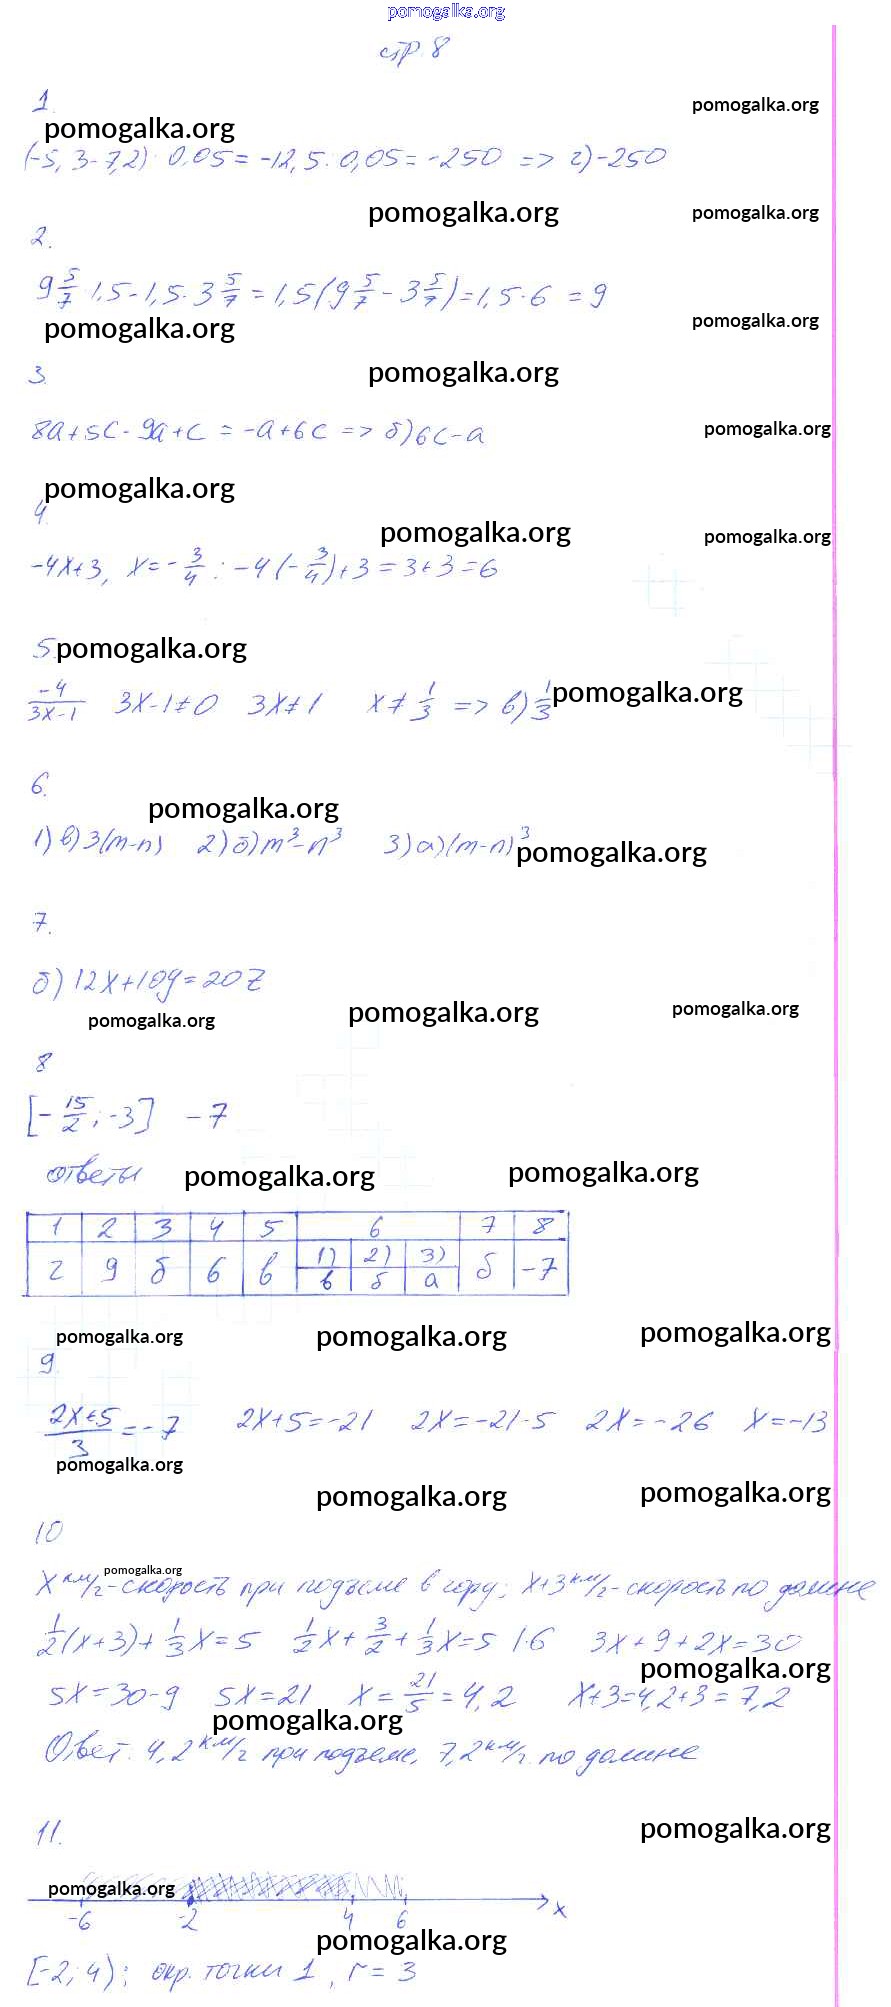 pomogalka.org
стр 8
1.
pomogalka.org
pomogalka.org
(-5,3-7,2):0,05=-12,5:0,05=-250 => г)-250
pomogalka.org
pomogalka.org
2.
9 5/7·1,5-1,5·3 5/7=1,5(9 5/7-3 5/7)=1,5·6=9
pomogalka.org
pomogalka.org
3.
pomogalka.org
8a+5c-9a+c=-a+6c => б)6c-a
pomogalka.org
pomogalka.org
4.
pomogalka.org
pomogalka.org
-4x+3, x=-3/4: -4(-3/4)+3=3+3=6
5.
pomogalka.org
-4/(3x-1) 3x-1≠0 3x≠1 x≠1/3 => в)1/3
pomogalka.org
6.
pomogalka.org
1)в)3(m-n) 2)б)m³-n³ 3)а)(m-n)³
pomogalka.org
7.
б)12x+10y=20z
pomogalka.org
pomogalka.org
pomogalka.org
8
[-15/2;-3] -7
ответы
pomogalka.org
pomogalka.org
1 2 3 4 5 6 7 8
г 9 б 6 в 1) 2) 3) б -7
в б а
pomogalka.org
pomogalka.org
pomogalka.org
9.
(2x+5)/3=-7 2x+5=-21 2x=-21-5 2x=-26 x=-13
pomogalka.org
pomogalka.org
pomogalka.org
10
pomogalka.org
x км/г-скорость при подъеме в гору; x+3 км/г-скорость по долине
1/2(x+3)+1/3x=5 1/2x+3/2+1/3x=5 |·6 3x+9+2x=30
pomogalka.org
5x=30-9 5x=21 x=21/5=4,2 x+3=4,2+3=7,2
pomogalka.org
Ответ: 4,2 км/г при подъеме, 7,2 км/г по долине
11.
pomogalka.org
pomogalka.org
-6 -2 4 6 x
pomogalka.org
[-2;4); окр. точки 1, r=3